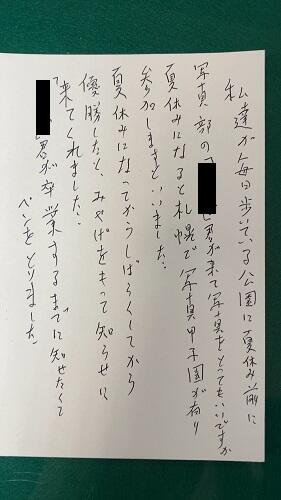 私達が毎日歩いている公園に夏休み前に
写真部の「世君が来て写真をとってもいいですか
夏休みになると札幌で写真甲子園が有り
参加しますといいました。
夏休みになってからしばらくしてから
優勝したと、みやげをもって知らせに
来てくれました。
君が卒業するまでに知せたくて
ペンをとりました